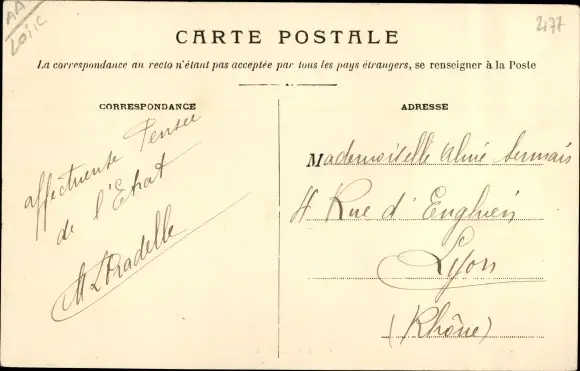 AA
LOIRE
2177
CARTE POSTALE
La correspondance au recto n'étant pas acceptée par tous les pays étrangers, se renseigner à la Poste
CORRESPONDANCE
affectueuse Pensée
de l'Etrat
M Pradelle
ADRESSE
Mademoiselle
4 Rue d'Enghien
Lyon
(Rhône)